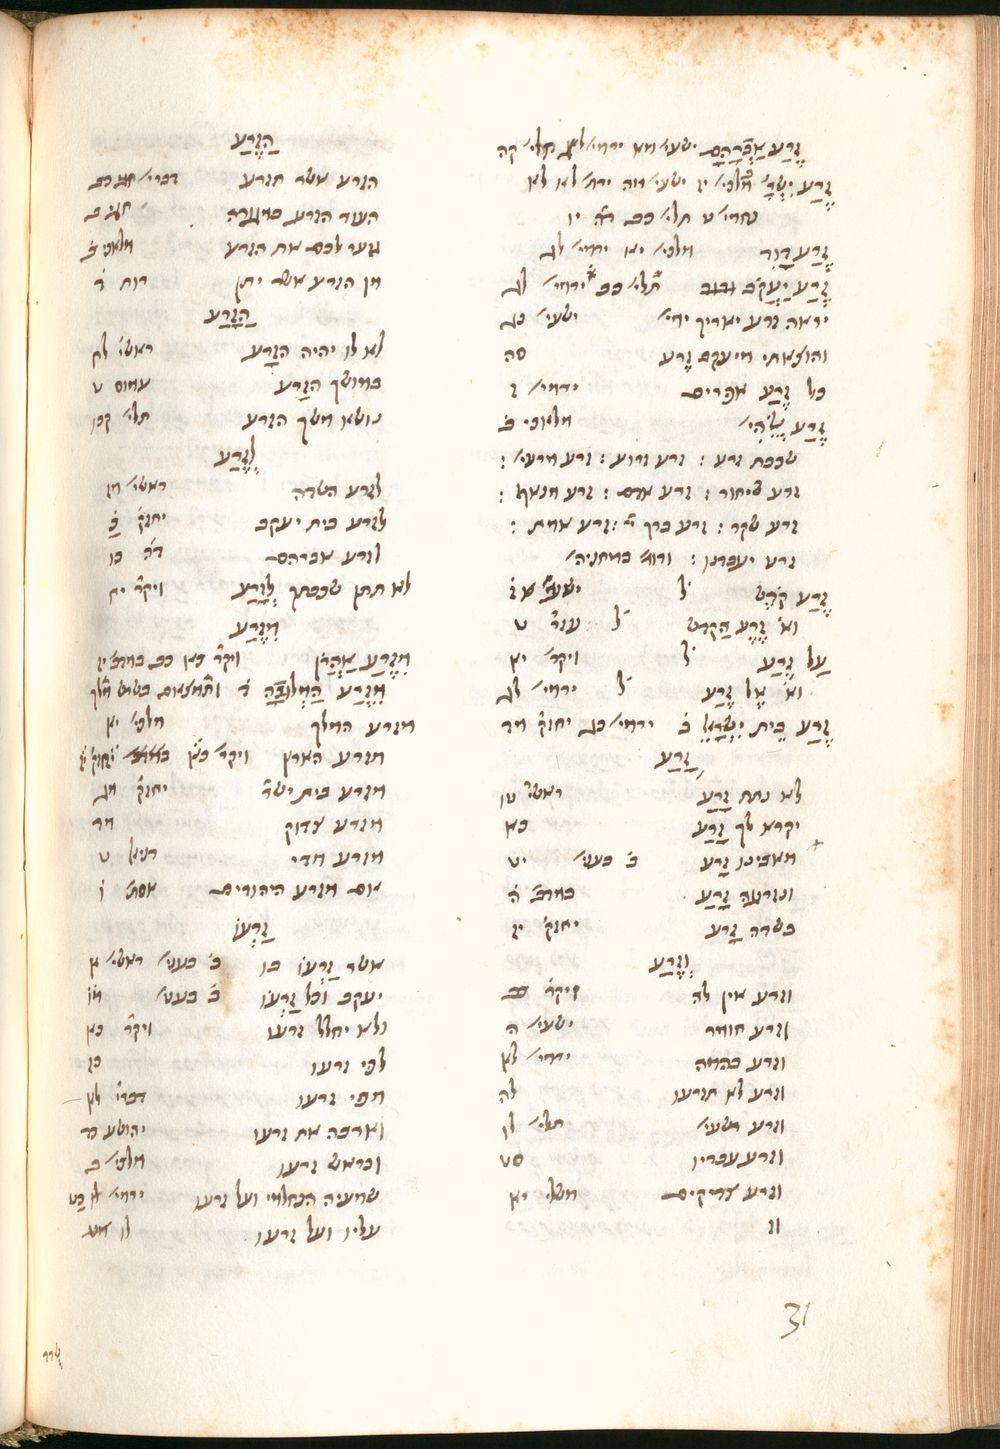 זֶרַע אַבְרָהָם ישעי׳ מא ירמי׳ לג תהלי׳ קה
זֶרַע יִשְׂרָ׳ מלכי׳ יז ישעי׳ מה ירמ׳ לא לא
נחמי׳ ט תלי׳ כב ד״ה יו
זֶרַע דָוִד מלכי׳ יא ירמי׳ לג
זֶרַע יַעֲקֹב תלי׳ כב ירמי׳ לג
יראה זרע יאריך ימי׳ ישעי׳ נג
והוצאתי מיעקב זֶרע סה
כל זֶרַע אפרים ירמי׳ ז
זֶרַע אֱלֹהִי׳ מלאכי ב
שכבת זרע : זרע זרוע : זרע מרעי׳ :
זרע שיחור : זרע אדם : זרע מנאף :
זרע שקר : זרע ברך יי׳ : זרע אמת :
זרע יעבדנו :
זֶרַע קֹדֶש ל׳ ישעי׳ ו
וא׳ זֶרַע הַקדש ל׳ עזר׳ ט
עַל זֶרַע ל׳ ויקר׳ יא
וא׳ אֶל זֶרַע ל׳ ירמי׳ לג
זֶרַע בֵית יִשְׂרָאֵל ב׳ ירמי׳ כג יחזק׳ מד
זָרַע
לא נתת זָרַע ראשי׳ טו
יקרא לך זָרַע כא
מאבינו זָרע ב׳ בעני׳ יט
ונזרעה זָרַע במדב׳ ה
בשדה זָרע יחזק׳ יז
וְזֶרַע
וזרע אין לה ויקר׳ כב
וזרע חומר ישעי׳ ה
וזרע בהמה ירמי׳ לא
וזרע לא תזרעו לה
וזרע רשעי׳ תלי׳ לז
וזרע עבדיו סט
וזרע צדיקים משלי׳ יא
וז
הַזֶרַע
הזרע אשר תזרע דברי׳ כב
העוד הזרע במגורה חגי ב
גוער לכם את הזרע מלאכי ב
מן הזרע אשר יתן רות ד
הַזָרַע
לא לו יהיה הזָרע ראשי׳ לח
במושך הזָרע עמוס ט
נושא משך הזרע תלי׳ קכו
לְזֶרַע
לזרע השדה ראשי׳ מז
לזרע בית יעקב יחזק׳ כ
לזרע אברהם ד״ה כו
לא תתן שכבתך לְזָרַע ויקר׳ יח
מִזֶרַע
מִזֶרַע אַהֲרֹן ויקר׳ כא כב במדב׳ יז
מִזֶרַע הַמְלוּכָה
מזרע המלך מלכי׳ יא
מזרע הארץ ויקר׳ כז יחזק׳ יז
מזרע בית ישר׳ יחזק׳ מג
מזרע צדוק מד
מזרע מדי דניאל ט
אם מזרע היהודים אסת׳ ו
זַרְעוֹ
אשר זַרְעוֹ בו ב׳ בעני׳ ראשי׳ א
יעקב וכל זַרְעוֹ ב׳ בעני׳ מו
ולא יחלל זרעו ויקר׳ כא
לפי זרעו כז
מפי זרעו
וארבה את זרעו יהושע כד
ובראש זרעו מלכי׳ ב
שמעיה הנחלמי ועל זרעו ירמי׳ כט
עליו ועל זרעו לו
31